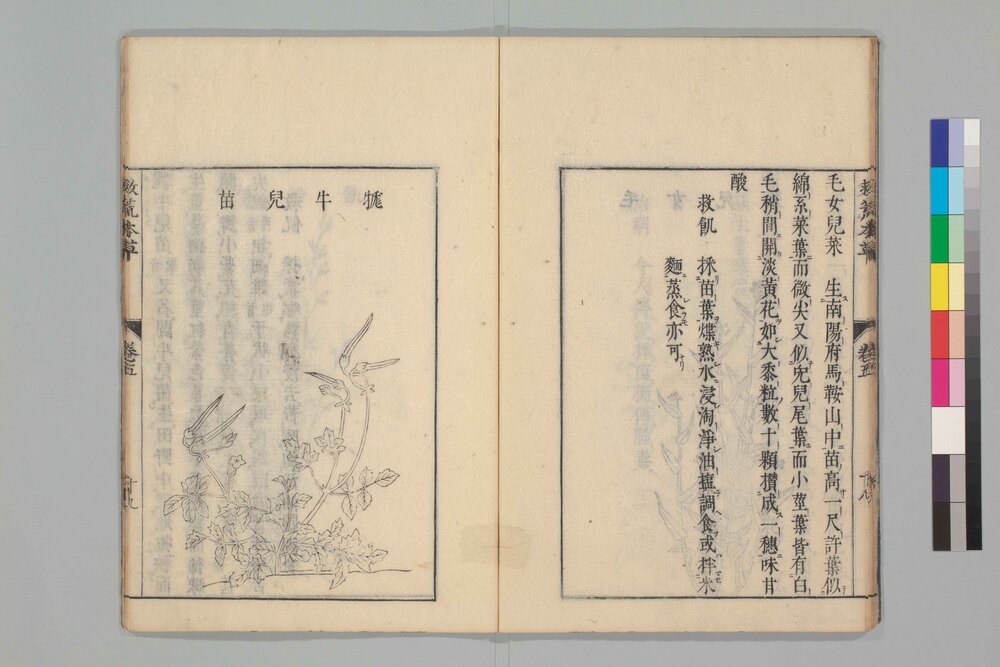 毛女兒菜 生南陽府馬鞍山中苗高一尺許葉似
綿糸菜葉而微尖又似兔兒尾葉而小莖葉皆有白
毛稍間開淡黃花如大黍粒數十顆攢成一穗味甘
酸
救飢 採苗葉煠熟水浸淘淨油塩調食或拌米
麵蒸食亦可
救荒本草 卷之五 十八
牻牛兒苗
救荒本草 卷之五 十九